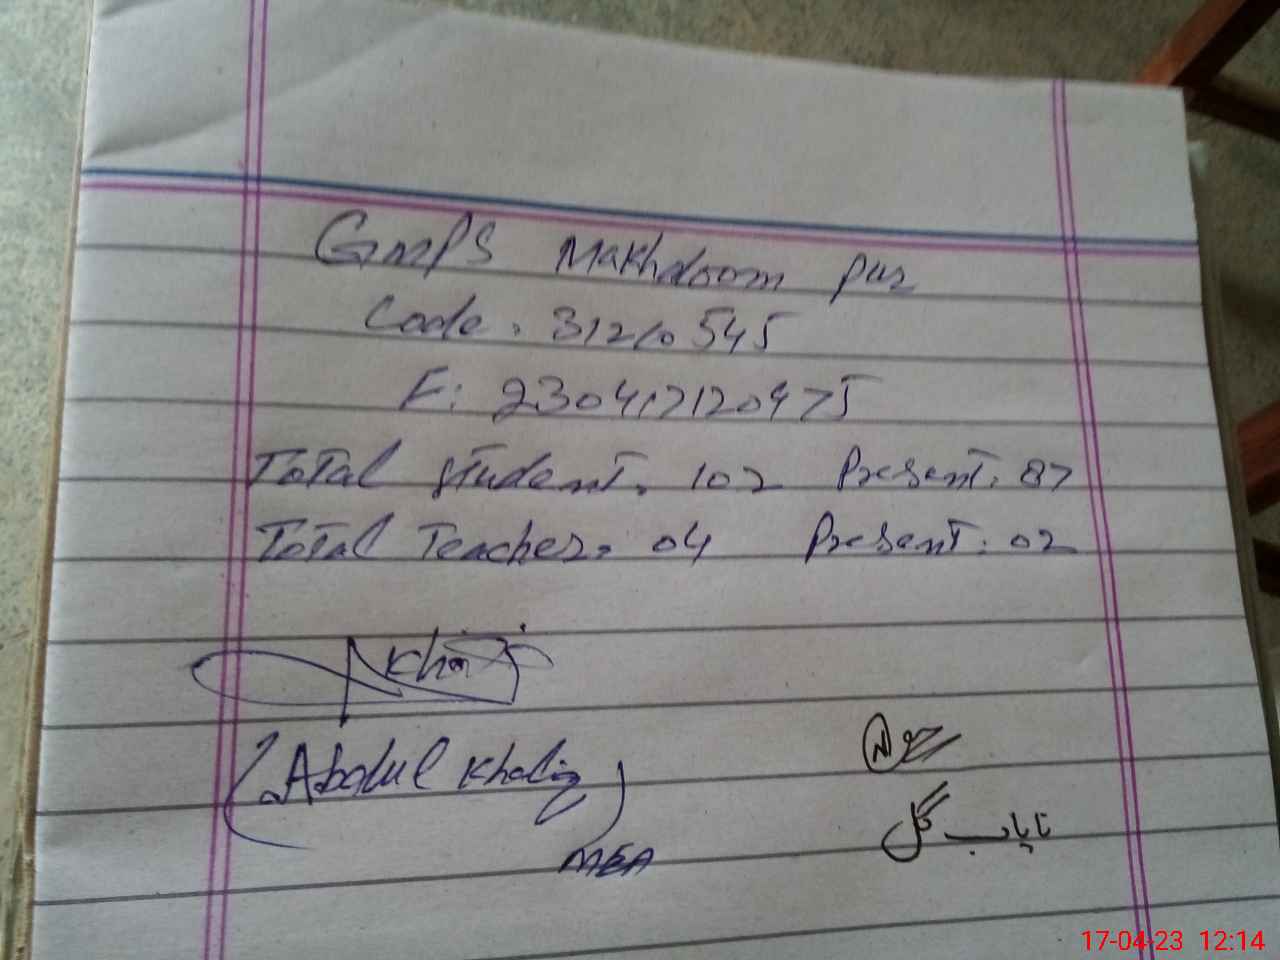 GMPS Makhdoom pur
Code: 31210545
F: 230417120475
Total student. 102 Present. 87
Total Teacher. 04 Present. 02
(Abdul Khaliq)
MEA
نایاب گل
17-04-23 12:14